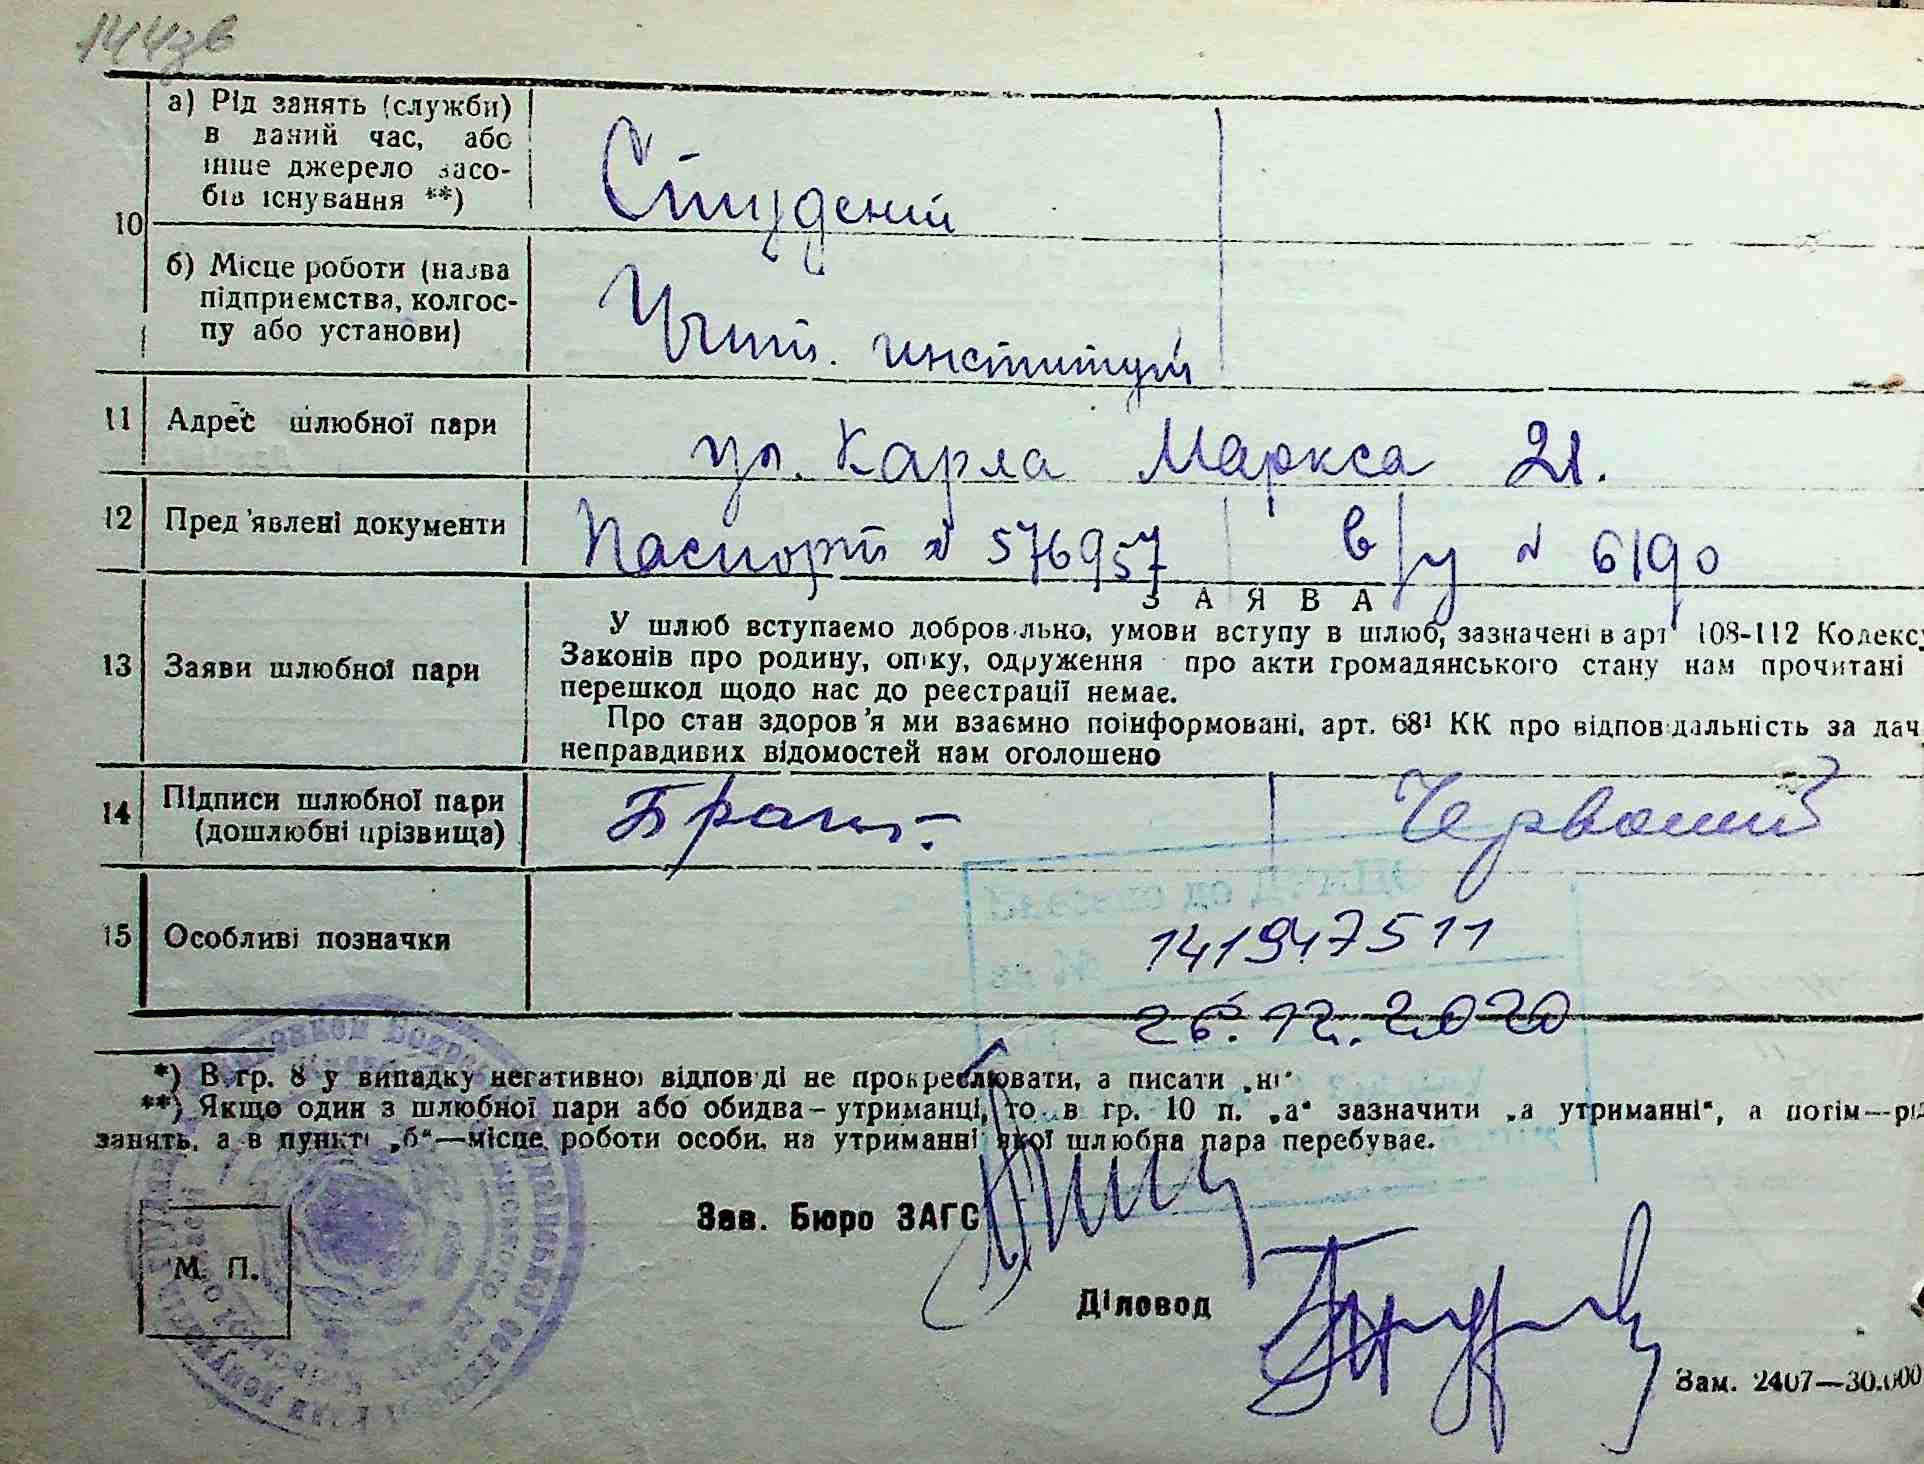 144зв
а) Рід занять (служби)
в даний час, або
інше джерело засо-
бів існування **)
Студент
10
б) Місце роботи (назва
підприємства, колгос-
пу або установи)
Учит. институт
11 Адрес шлюбної пари
ул. Карла Маркса 21.
12 Пред'явлені документи
Паспорт № 576957 в/у № 6190
ЗАЯВА
13 Заяви шлюбної пари
У шлюб вступаємо добровільно, умови вступу в шлюб, зазначені в арт 108-112 Кодексу
Законів про родину, опіку, одруження про акти громадянського стану нам прочитані
перешкод щодо нас до реєстрації немає.
Про стан здоров'я ми взаємно поінформовані, арт. 68¹ КК про відповідальність за дач
неправдивих відомостей нам оголошено
14 Підписи шлюбної пари
(дошлюбні прізвища)
Червоний
15 Особливі позначки
141947511
26.12.2020
*) В гр. 8 у випадку негативної відповіді не прокреслювати, а писати „ні"
**) Якщо один з шлюбної пари або обидва—утриманці, то в гр. 10 п. „а" зазначити „а утриманні", а потім—рід
занять, а в пункті „б"—місце роботи особи, на утриманні якої шлюбна пара перебуває.
Зав. Бюро ЗАГС
М. П.
Діловод
Зам. 2407—30.000